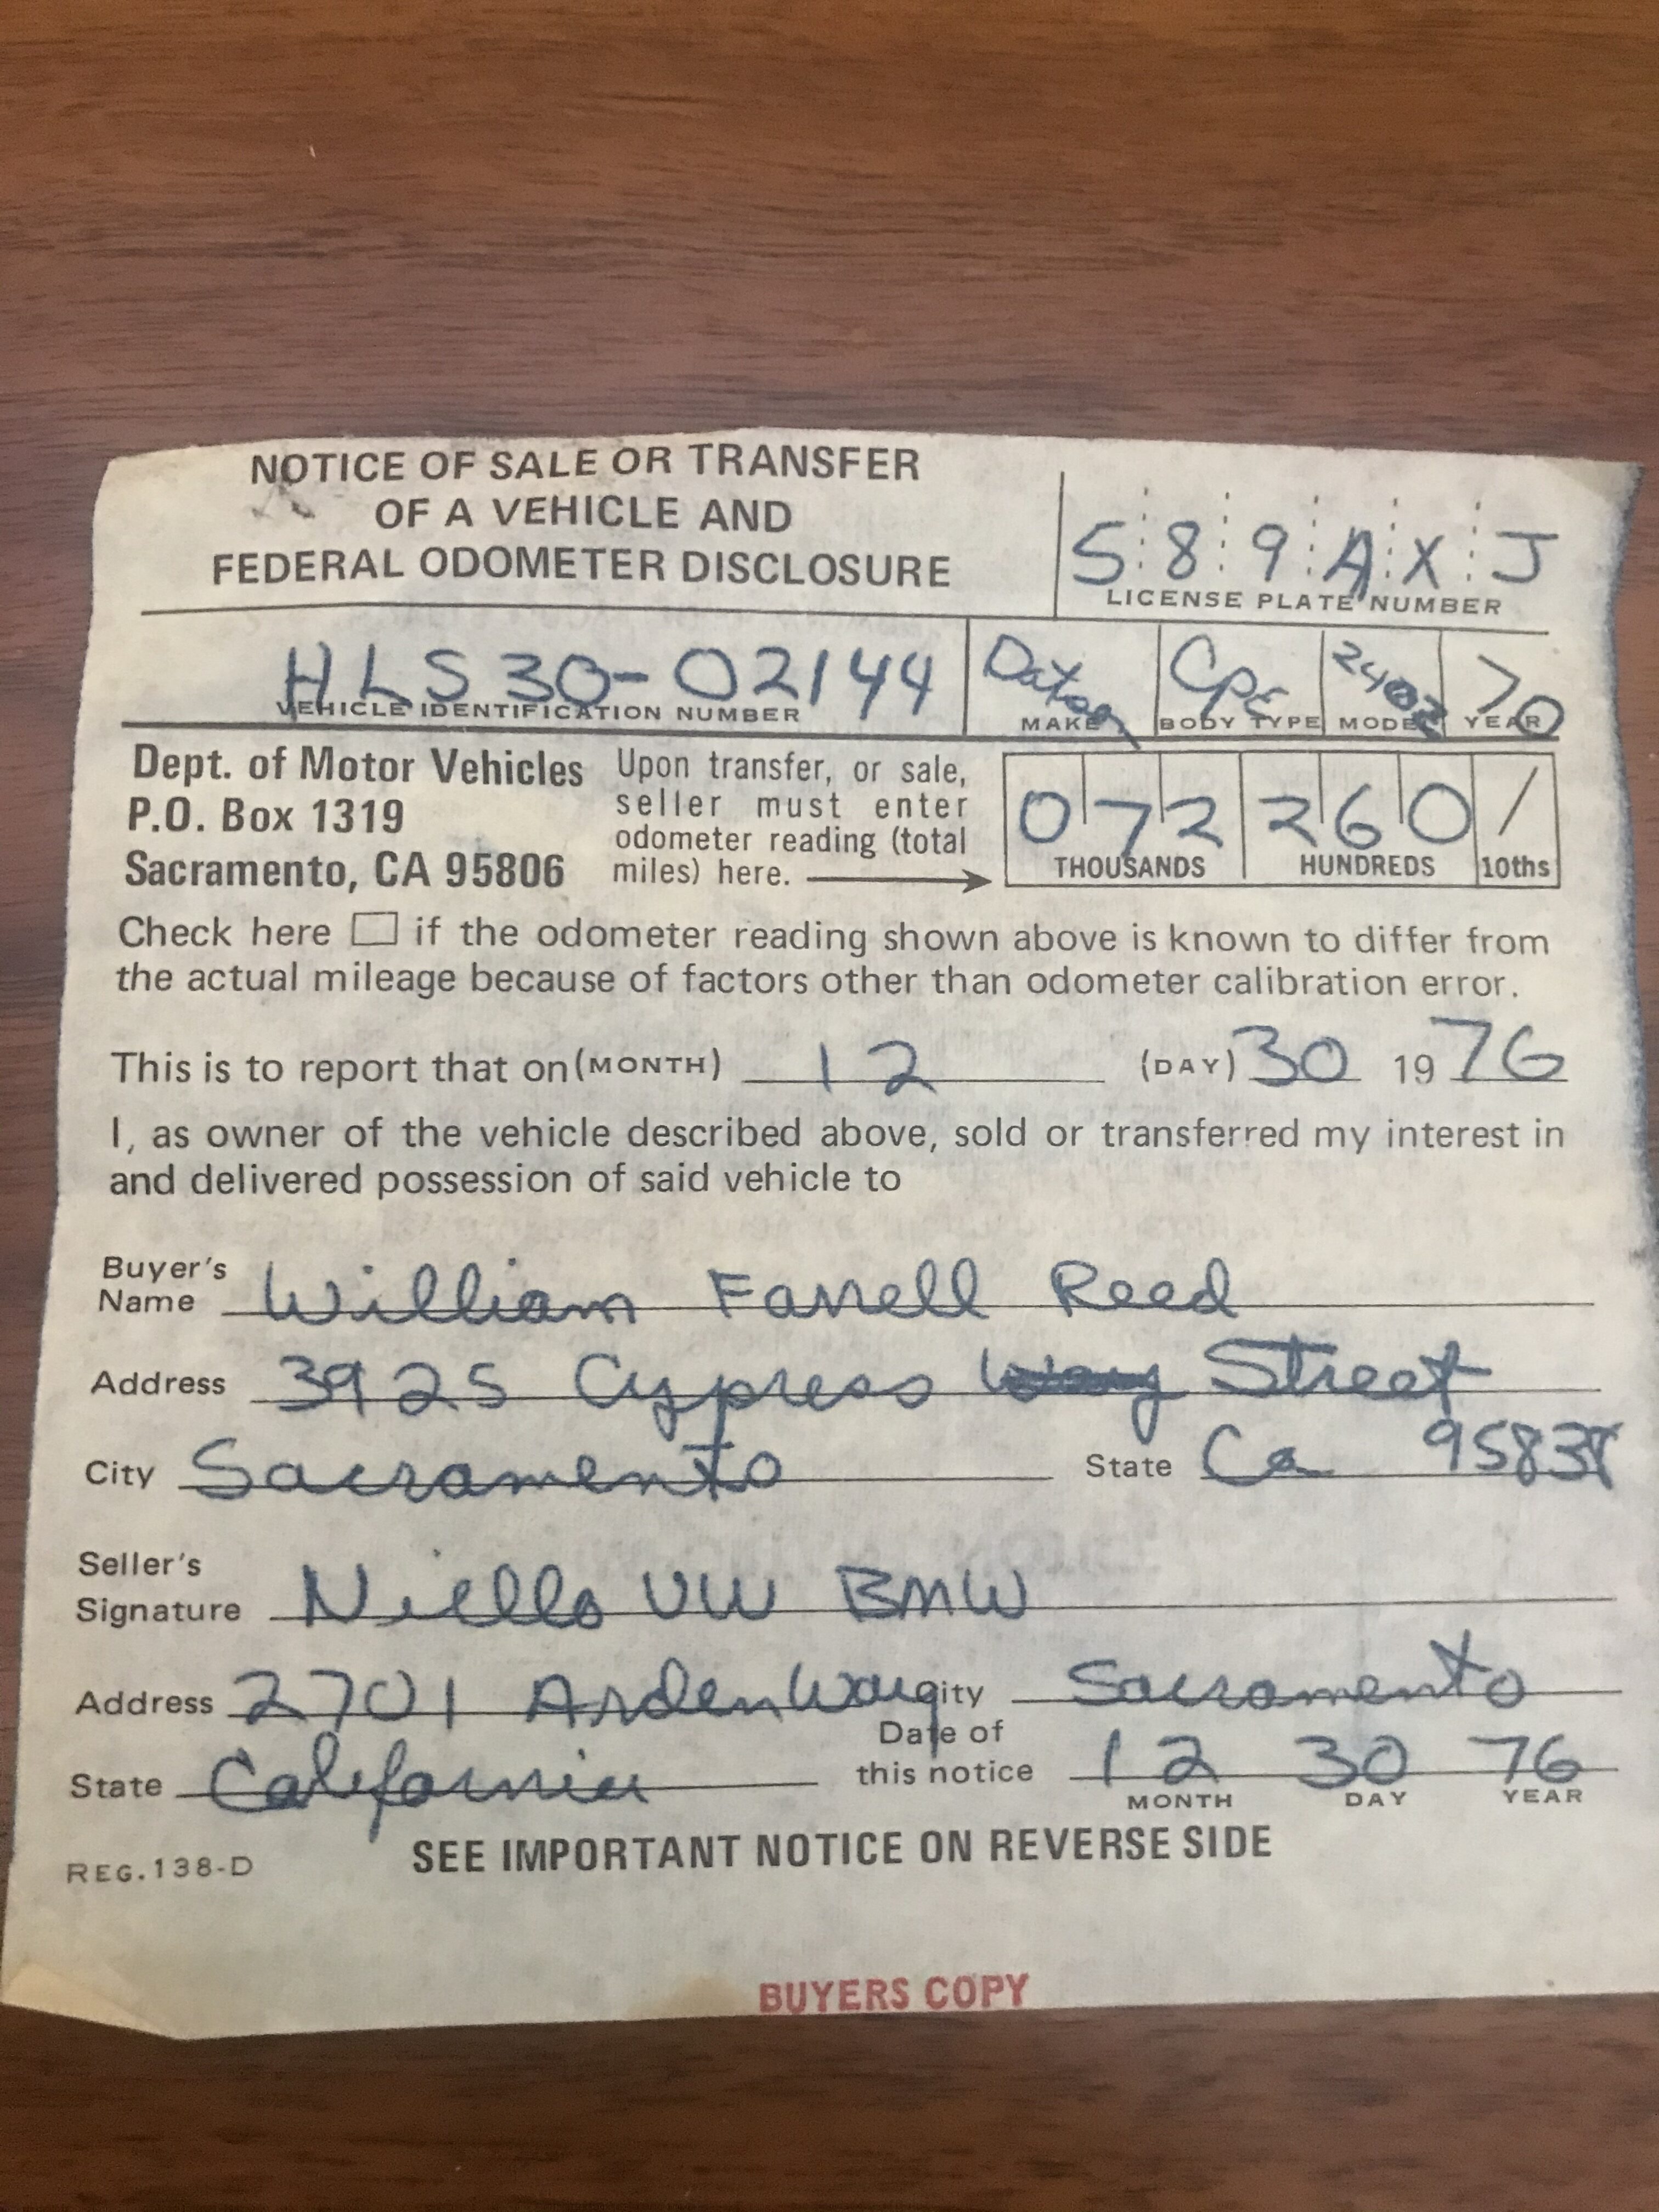 NOTICE OF SALE OR TRANSFER
OF A VEHICLE AND
FEDERAL ODOMETER DISCLOSURE
589AXJ
LICENSE PLATE NUMBER
HLS30-02144 Datson Cpe 240Z 70
VEHICLE IDENTIFICATION NUMBER MAKE BODY TYPE MODEL YEAR
Dept. of Motor Vehicles
P.O. Box 1319
Sacramento, CA 95806
Upon transfer, or sale,
seller must enter
odometer reading (total
miles) here.
072 260 /
THOUSANDS HUNDREDS 10ths
Check here if the odometer reading shown above is known to differ from
the actual mileage because of factors other than odometer calibration error.
This is to report that on (MONTH) 12 (DAY) 30 1976
I, as owner of the vehicle described above, sold or transferred my interest in
and delivered possession of said vehicle to
Buyer's
Name William Farrell Reed
Address 3925 Cypress Way Street
City Sacramento State Ca 95838
Seller's
Signature Niello VW BMW
Address 2701 Arden Way City Sacramento
State California Date of
this notice 12 30 76
MONTH DAY YEAR
REG.138-D SEE IMPORTANT NOTICE ON REVERSE SIDE
BUYERS COPY